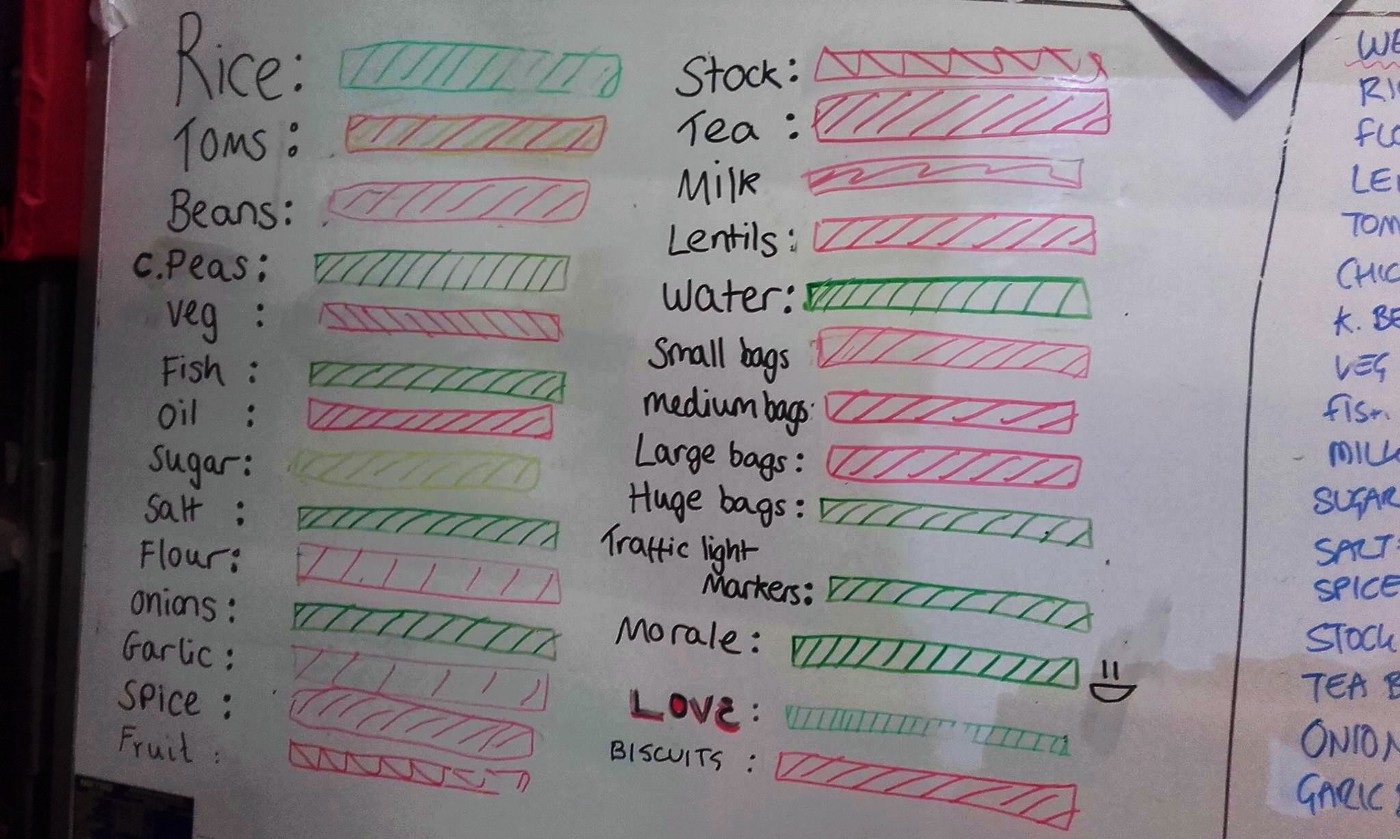 Rice:
Toms:
Beans:
C.Peas:
Veg :
Fish :
Oil :
Sugar:
Salt :
Flour:
Onions:
Garlic:
Spice :
Fruit :
Stock:
Tea :
Milk
Lentils:
Water:
Small bags
medium bags:
Large bags:
Huge bags:
Traffic light
Markers:
Morale:
LOVE:
BISCUITS :
WE
RI
FL
LE
TOM
CHIC
K. BE
VEG
FISH
MILK
SUGAR
SART
SPICE
STOCK
TEA B
ONION
GARIC